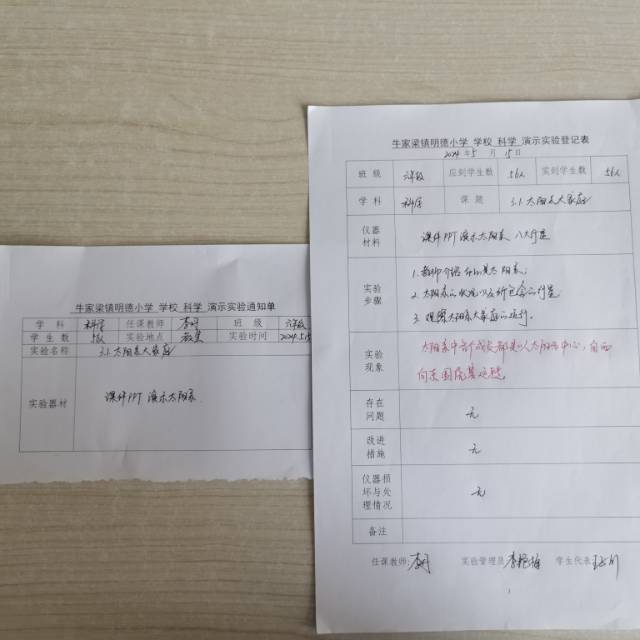 牛家梁镇明德小学 学校 科学 演示实验通知单
学 科 科学 任课教师 班 级 六年级
学生数 实验地点 教室 实验时间 2024.5.15
实验名称 3.1太阳系大家庭
实验器材 课件PPT 演示太阳系
牛家梁镇明德小学 学校 科学 演示实验登记表
2024年5月15日
班 级 六年级 应到学生数 56人 实到学生数 56人
学 科 科学 课 题 3.1太阳系大家庭
仪器
材料 课件PPT演示太阳系、八大行星
实验
步骤
1.教师介绍 太阳系.
2.太阳系的 以及所包含的行星
3.观察太阳系大家庭的运行.
实验
现象
太阳系中各个成员都是以太阳为中心,自西
向东围绕其运转
存在
问题 无
改进
措施 无
仪器损
坏与处
理情况 无
备注
任课教师: 实验管理员 李 学生代表